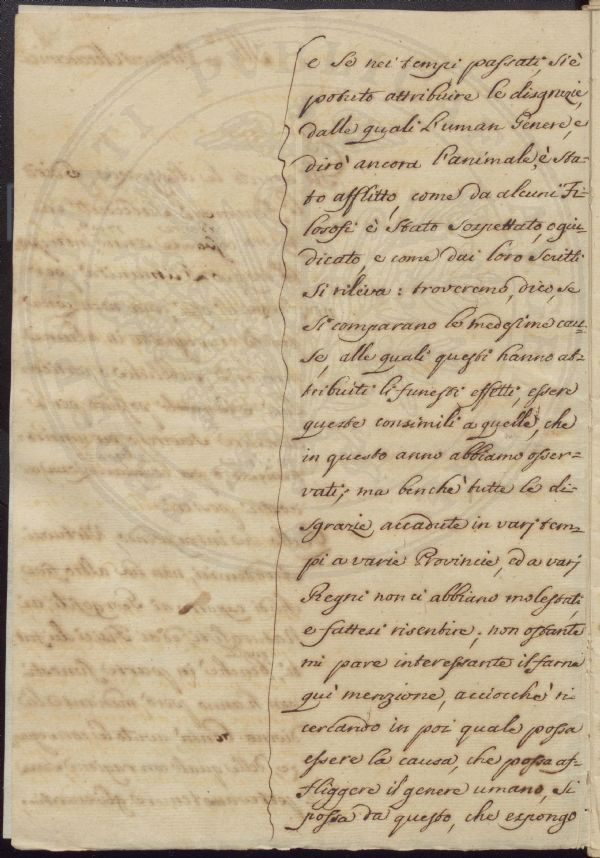 e se nei tempi passati, si è
potuto attribuire le disgrazie,
dalle quali l'uman Genere, e
dirò ancora l'animale, è sta-
to afflitto, come da alcuni Fi-
losofi è stato sospettato, o giu-
dicato, e come dai loro scritti
si rileva: troveremo, dico, se
si comparano le medesime cau-
se, alle quali questi hanno at-
tribuiti li funesti effetti, essere
queste consimili a quelle, che
in questo anno abbiamo osser-
vati; ma benchè tutte le di-
sgrazie accadute in varj tem-
pi a varie Provincie, ed a varj
Regni non ci abbiano molestati,
e fattesi risentire; non ostante
mi pare interessante il farne
quì menzione, acciocchè ri-
cercando in poi quale possa
essere la causa, che possa af-
fliggere il genere umano, si
possa da questo, che espongo